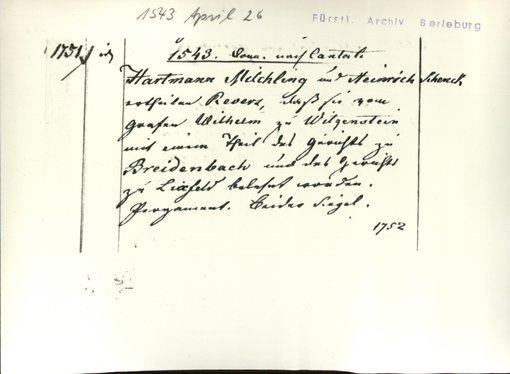 1543 April 26
Fürstl. Archiv Berleburg
1751
1543. Donn. nach Cantate
Hartmann Milchling und Heinrich Schenck,
ertheilen Revers, daß sie vom
Grafen Wilhelm zu Witgenstein
mit einem Theil des Gerichts zu
Breidenbach und des Gerichts
zu Lixfeld belehnt worden.
Pergament. Beider Siegel.
1752